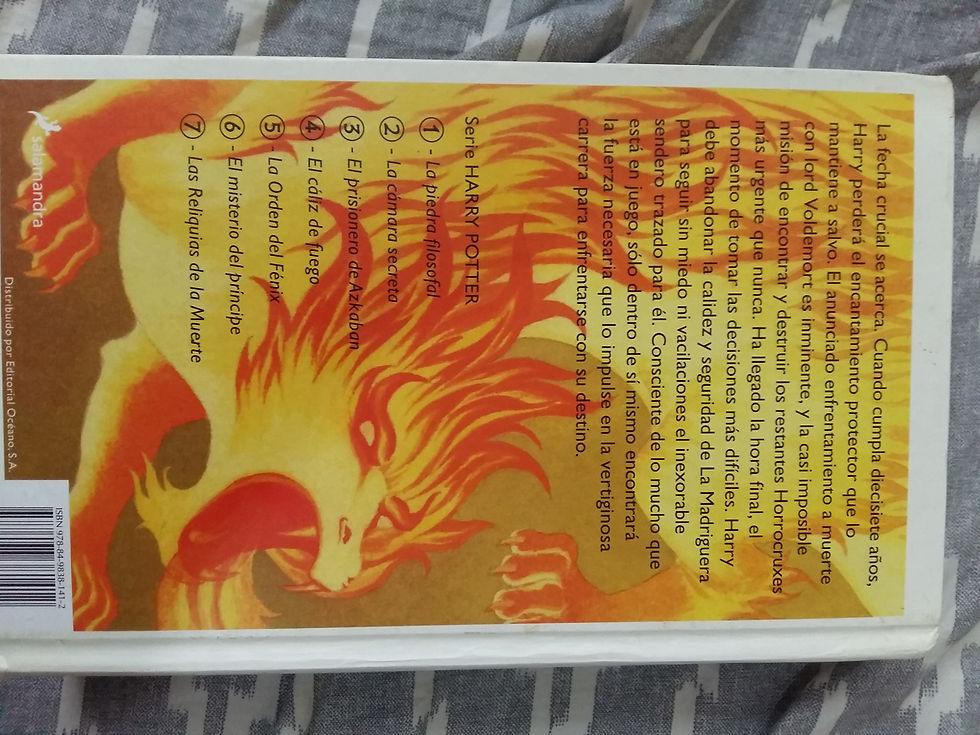 La fecha crucial se acerca. Cuando cumpla diecisiete años,
Harry perderá el encantamiento protector que lo
mantiene a salvo. El anunciado enfrentamiento a muerte
con lord Voldemort es inminente, y la casi imposible
misión de encontrar y destruir los restantes Horrocruxes
más urgente que nunca. Ha llegado la hora final, el
momento de tomar las decisiones más difíciles. Harry
debe abandonar la calidez y seguridad de La Madriguera
para seguir sin miedo ni vacilaciones el inexorable
sendero trazado para él. Consciente de lo mucho que
está en juego, sólo dentro de sí mismo encontrará
la fuerza necesaria que lo impulse en la vertiginosa
carrera para enfrentarse con su destino.
Serie HARRY POTTER
1 - La piedra filosofal
2 - La cámara secreta
3 - El prisionero de Azkaban
4 - El cáliz de fuego
5 - La Orden del Fénix
6 - El misterio del príncipe
7 - Las Reliquias de la Muerte
salamandra
Distribuido por Editorial Océano, S.A.
ISBN 978-84-9838-141-2